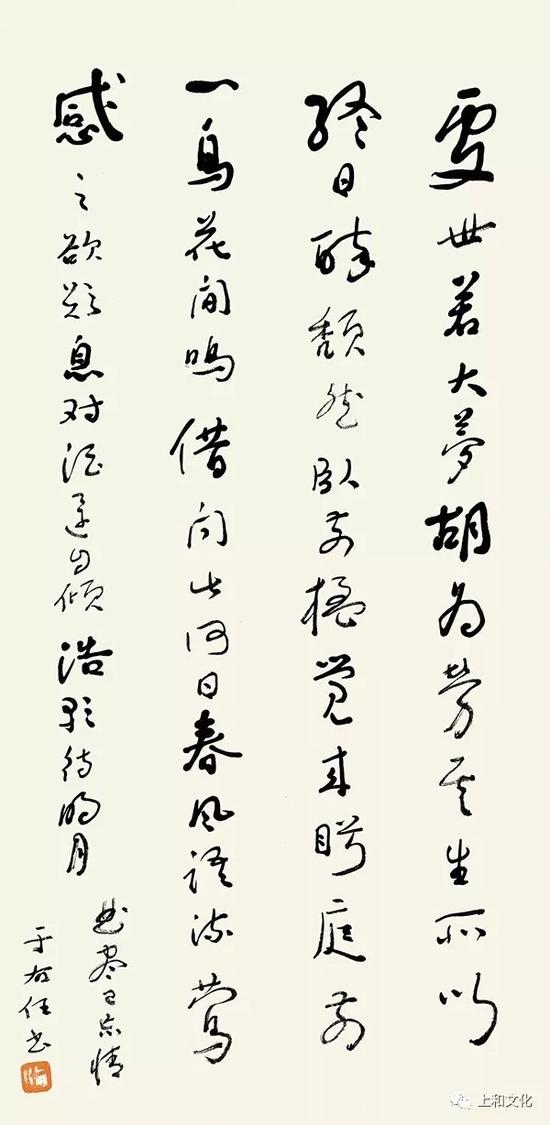 處世若大夢胡為勞其生所以
終日醉頹然臥前楹覺來眄庭前
一鳥花間鳴借問此何日春風語流鶯
感之欲歎息對酒還自傾浩歌待明月
曲盡已忘情
于右任書
上和文化